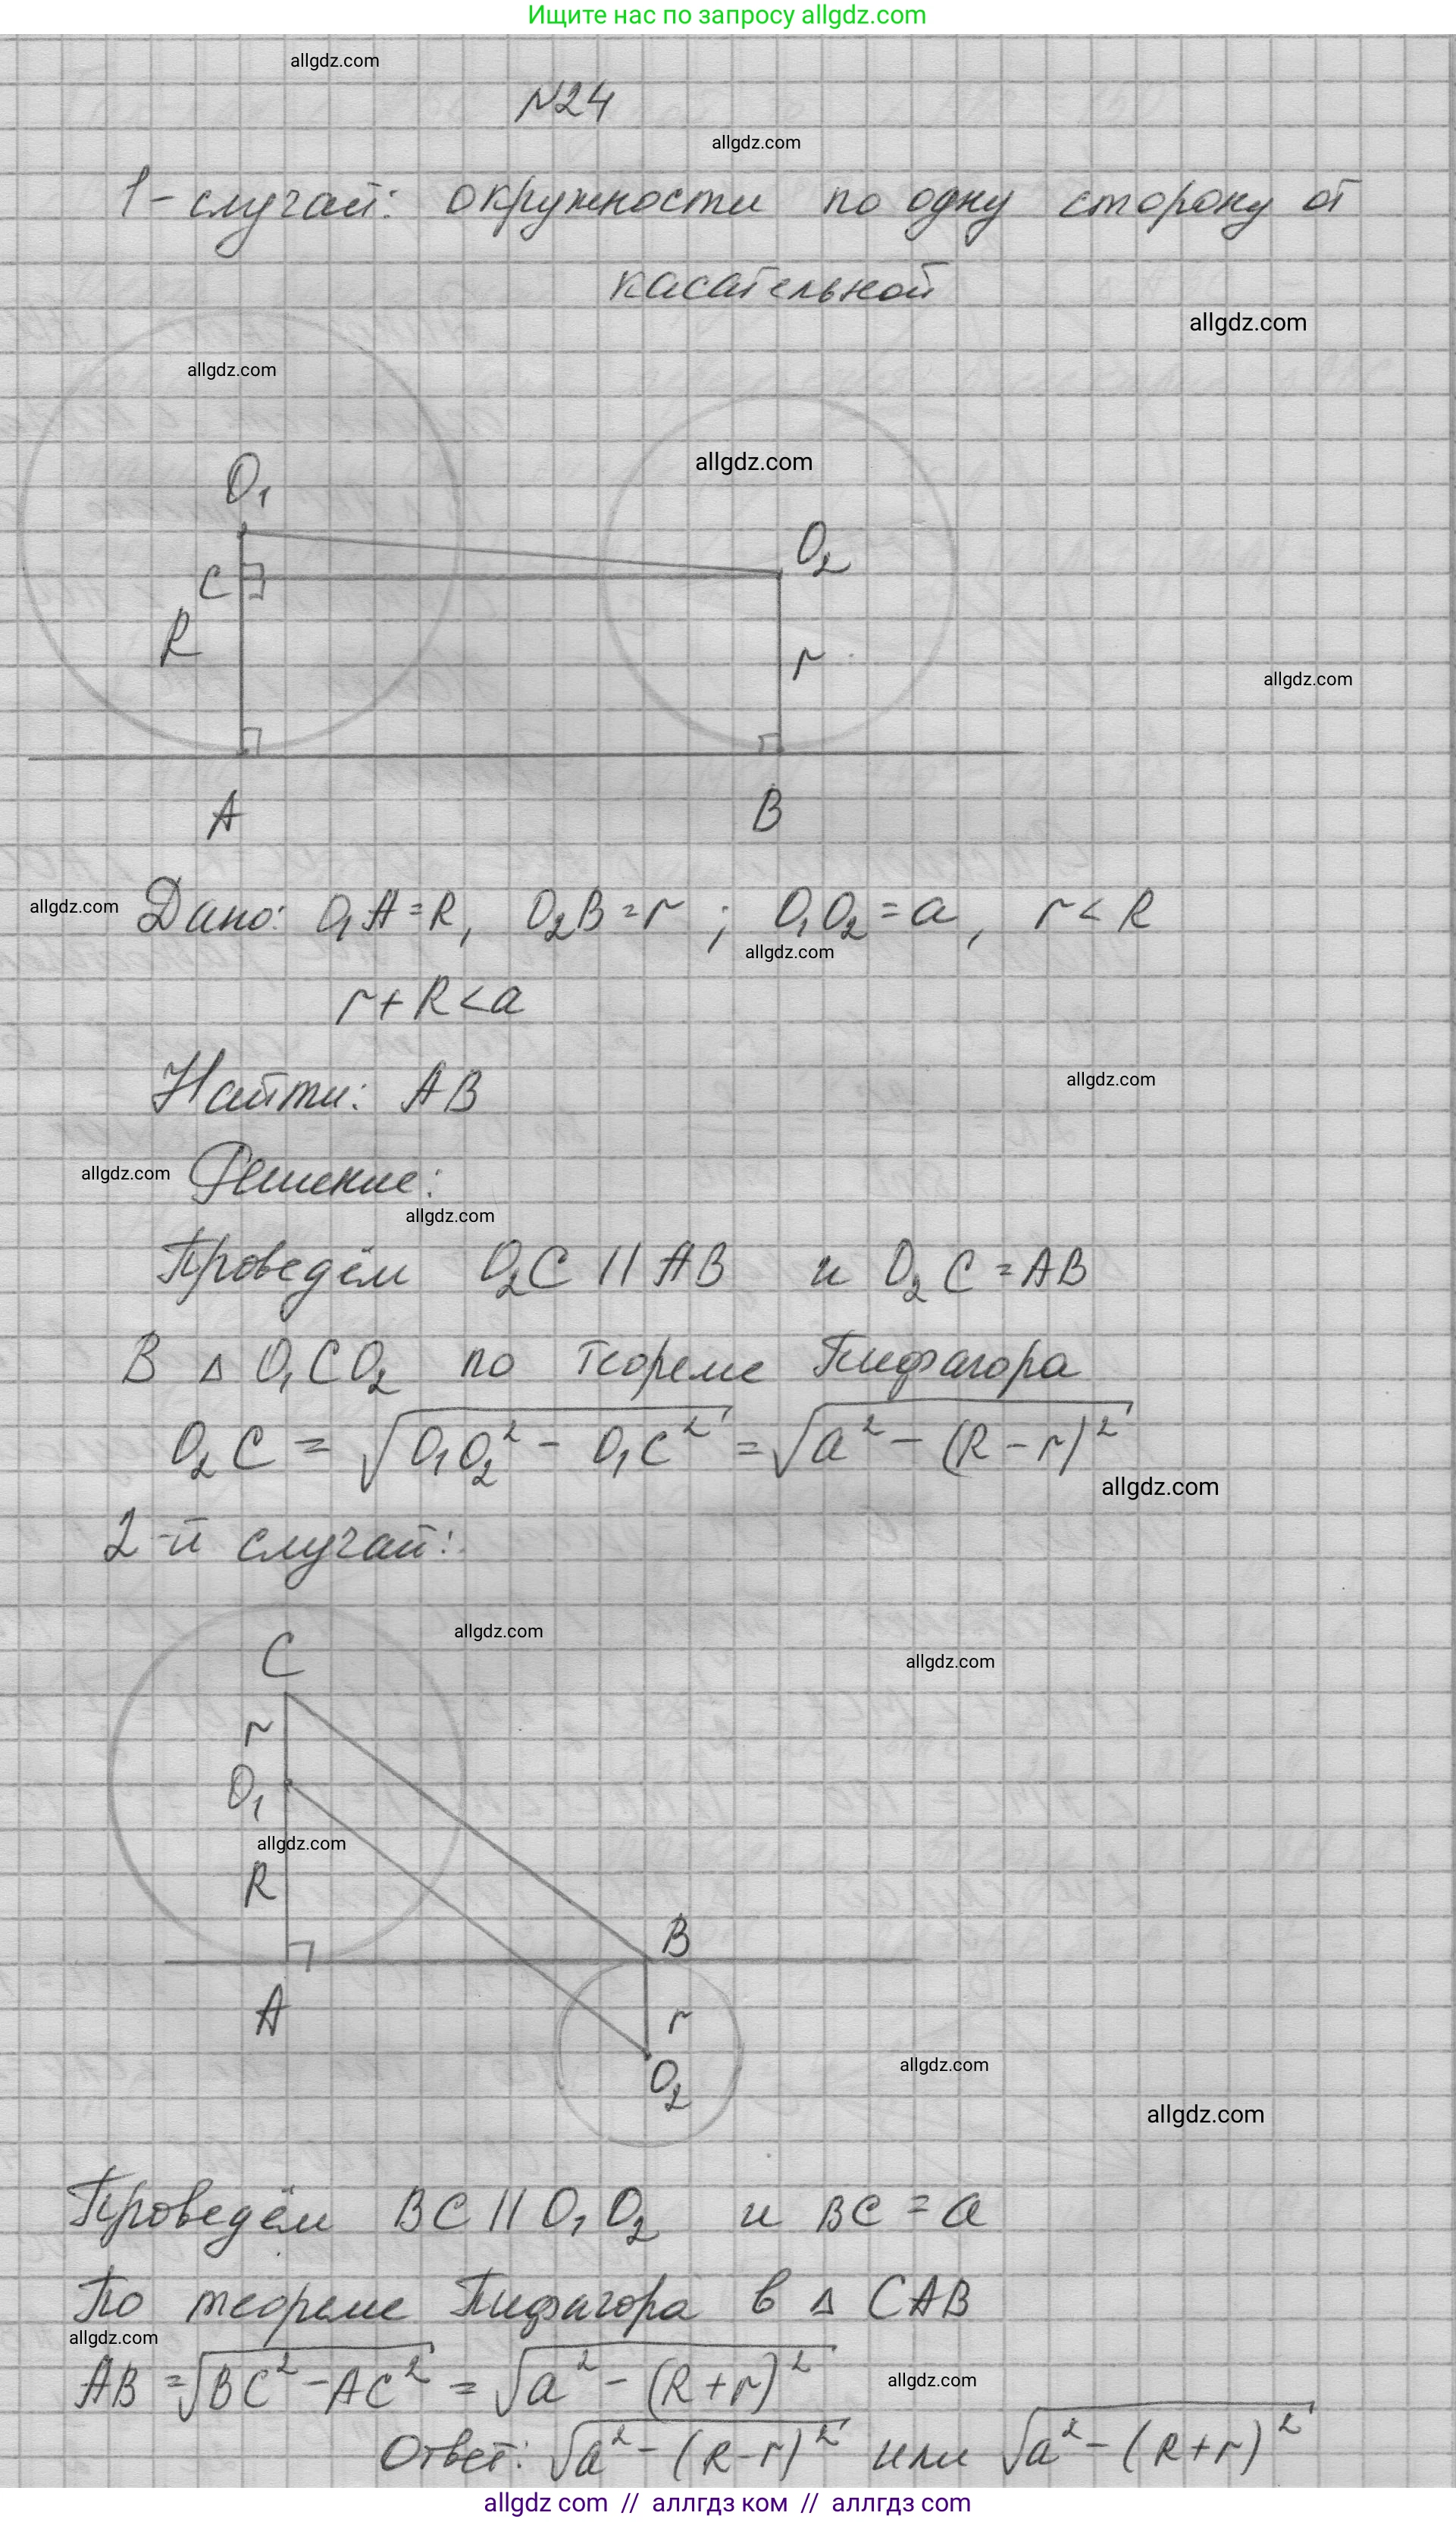 Ищите нас по запросу allgdz.com
allgdz.com
№24
allgdz.com
1-случай: окружности по одну сторону от
касательной
allgdz.com
allgdz.com
allgdz.com
O₁
O₂
C
R
r
allgdz.com
A B
allgdz.com
Дано: O₁A = R, O₂B = r ; O₁O₂ = a, r < R
allgdz.com
r + R < a
allgdz.com
Найти: AB
allgdz.com
Решение:
allgdz.com
Проведём O₂C || AB и O₂C = AB
В Δ O₁CO₂ по теореме Пифагора
O₂C = √(O₁O₂² - O₁C²) = √(a² - (R - r)²)
allgdz.com
2-й случай:
allgdz.com
C
allgdz.com
r
O₁
allgdz.com
R
B
A
r
allgdz.com
O₂
allgdz.com
Проведём BC || O₁O₂ и BC = a
По теореме Пифагора в Δ CAB
allgdz.com
AB = √(BC² - AC²) = √(a² - (R + r)²)
allgdz.com
Ответ: √(a² - (R - r)²) или √(a² - (R + r)²)
allgdz com // аллгдз ком // аллгдз com